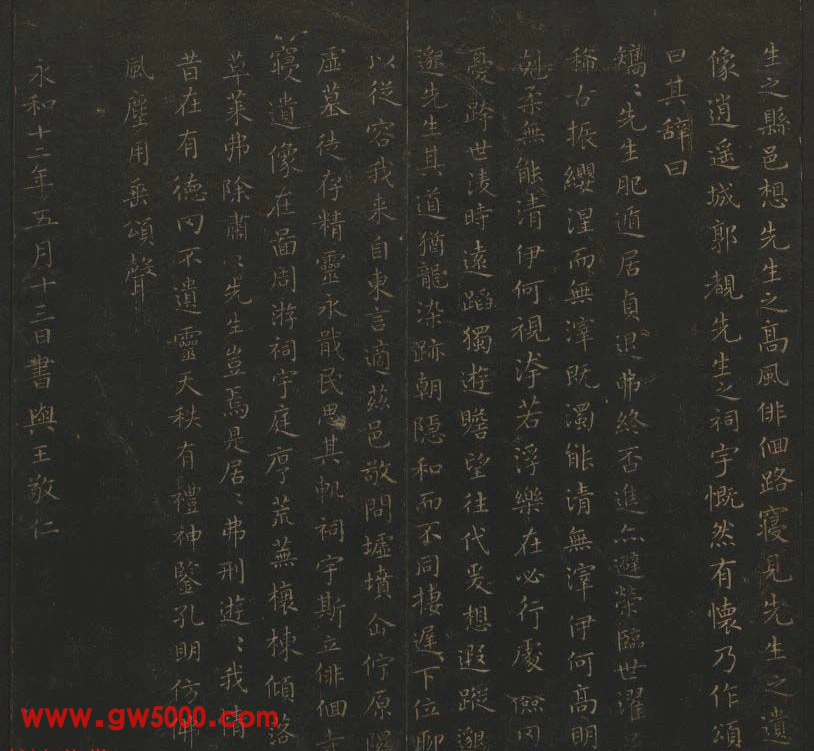 生之縣邑想先生之高風徘徊路寢見先生之遺
像逍遥城郭覩先生之祠宇慨然有懷乃作頌
曰其辭曰
矯〻先生肥遁居貞退弗終否進亦避榮臨世濯
稀古振纓涅而無滓既濁能清無滓伊何高明
剋柔無能清伊何視洿若浮樂在必行處儉罔
憂跨世凌時遠蹈獨遊瞻望往代爰想遐蹤邈
邈先生其道猶龍染跡朝隱和而不同棲遲下位聊
以從容我来自東言適茲邑敬問墟墳企佇原隰
虛墓徒存精靈永戢民思其軌祠宇斯立徘徊寺
寢遺像在啚周游祠宇庭序荒蕪榱棟傾落
草萊弗除肅〻先生豈焉是居〻弗刑遊〻我情
昔在有德罔不遺靈天秩有禮神鑒孔明仿佛
風塵用垂頌聲
永和十二年五月十三日書與王敬仁
www.gw5000.com